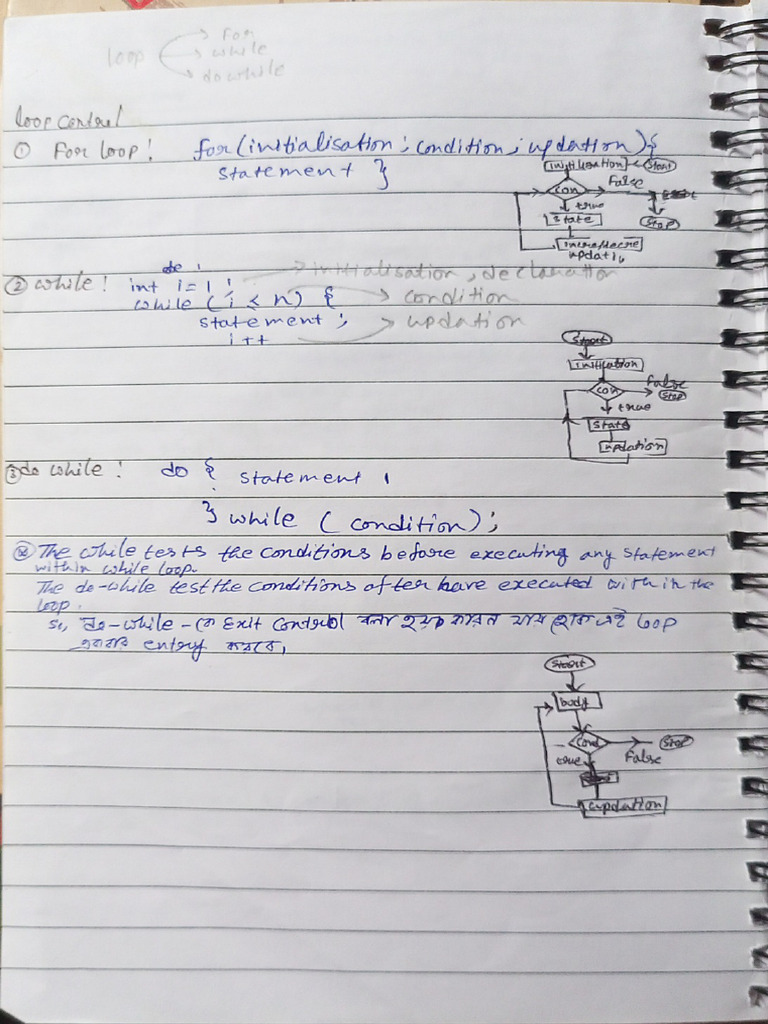 loop
For
while
do while
loop control
① For loop : for (initialisation ; condition ; updation) {
statement }
initilisation Start
con False
true
state Stop
incre/decre
updati
② while : int i = 1 ; initialisation, declaration
while ( i < n ) { condition
statement ; updation
i++
Start
con False
Stop
true
state
updation
③ do while : do { statement ,
} while ( condition ) ;
The while tests the conditions before executing any statement
within while loop.
The do-while test the conditions after have executed with in the
loop.
so, do-while - কে Exit Control বলা হয় কারন যায় হোক এই loop
একবার entry করবে,
Start
body
cond Stop
true False
updation